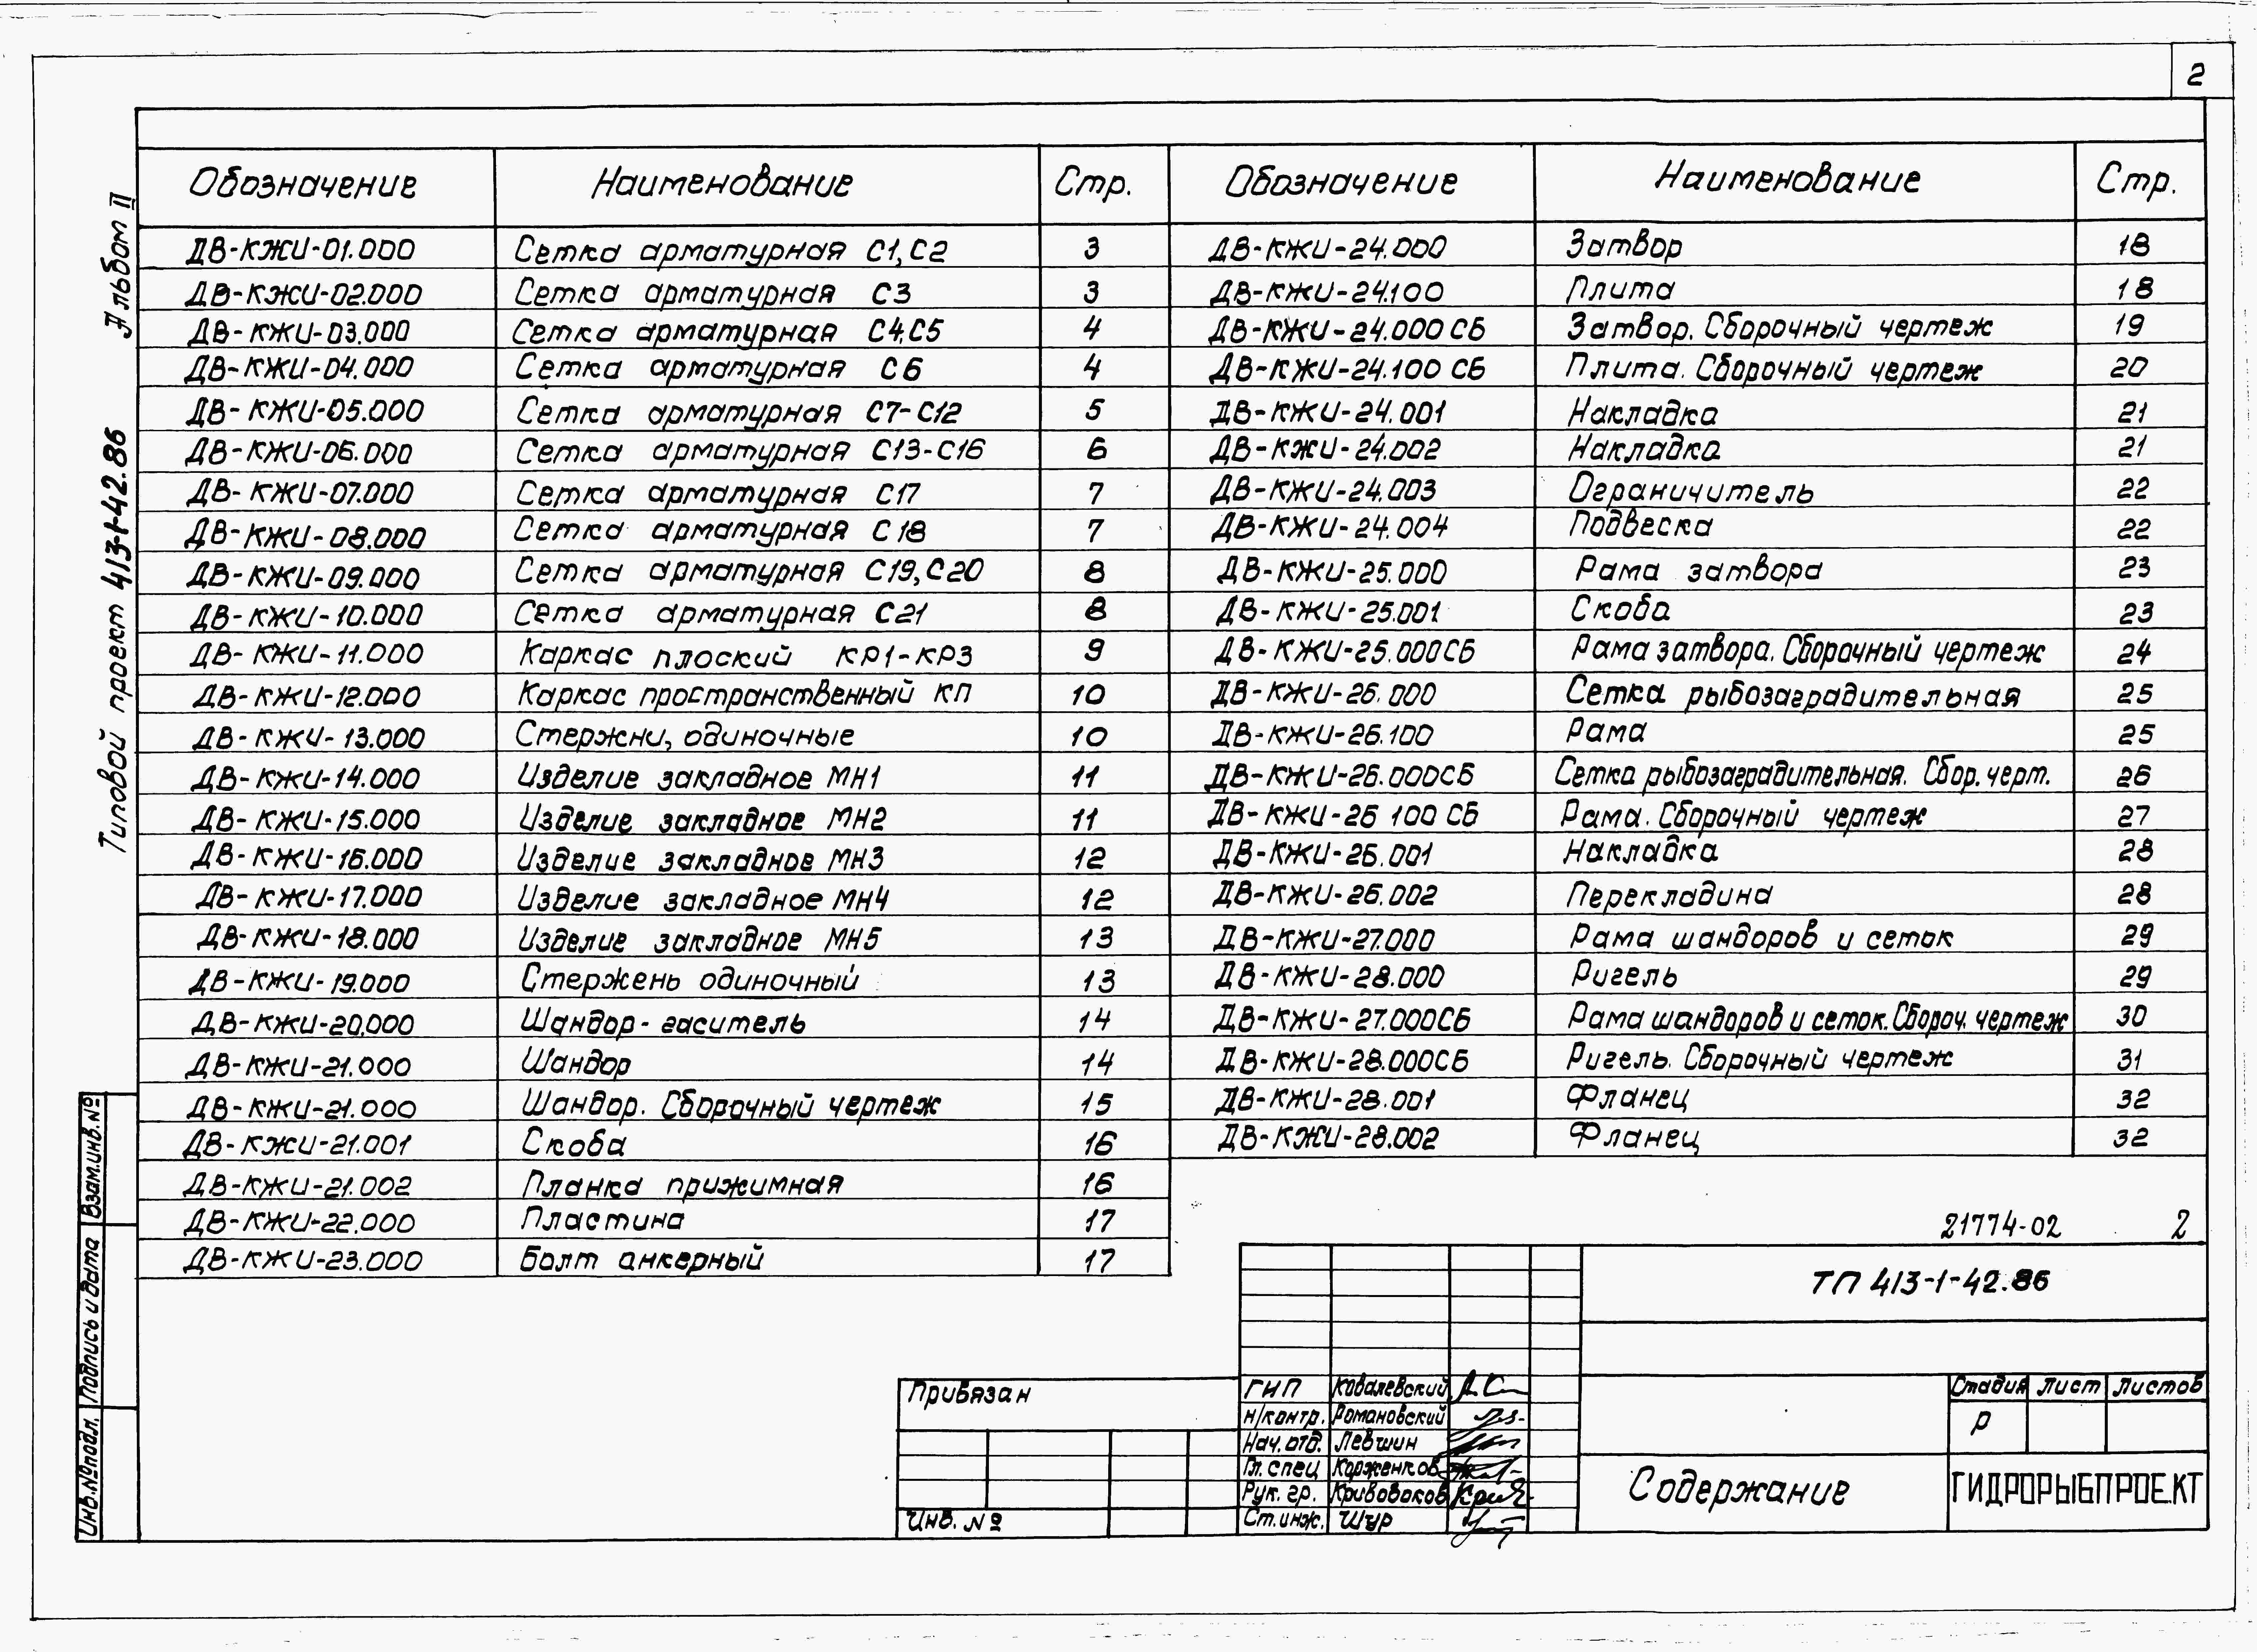 2
Альбом II
Типовой проект 413-1-42.86
Обозначение Наименование Стр.
ДВ-КЖИ-01.000 Сетка арматурная С1, С2 3
ДВ-КЖИ-02.000 Сетка арматурная С3 3
ДВ-КЖИ-03.000 Сетка арматурная С4, С5 4
ДВ-КЖИ-04.000 Сетка арматурная С6 4
ДВ-КЖИ-05.000 Сетка арматурная С7-С12 5
ДВ-КЖИ-06.000 Сетка арматурная С13-С16 6
ДВ-КЖИ-07.000 Сетка арматурная С17 7
ДВ-КЖИ-08.000 Сетка арматурная С18 7
ДВ-КЖИ-09.000 Сетка арматурная С19, С20 8
ДВ-КЖИ-10.000 Сетка арматурная С21 8
ДВ-КЖИ-11.000 Каркас плоский КР1-КР3 9
ДВ-КЖИ-12.000 Каркас пространственный КП 10
ДВ-КЖИ-13.000 Стержни, одиночные 10
ДВ-КЖИ-14.000 Изделие закладное МН1 11
ДВ-КЖИ-15.000 Изделие закладное МН2 11
ДВ-КЖИ-16.000 Изделие закладное МН3 12
ДВ-КЖИ-17.000 Изделие закладное МН4 12
ДВ-КЖИ-18.000 Изделие закладное МН5 13
ДВ-КЖИ-19.000 Стержень одиночный 13
ДВ-КЖИ-20.000 Шандор-гаситель 14
ДВ-КЖИ-21.000 Шандор 14
ДВ-КЖИ-21.000 Шандор. Сборочный чертеж 15
ДВ-КЖИ-21.001 Скоба 16
ДВ-КЖИ-21.002 Планка прижимная 16
ДВ-КЖИ-22.000 Пластина 17
ДВ-КЖИ-23.000 Болт анкерный 17
Обозначение Наименование Стр.
ДВ-КЖИ-24.000 Затвор 18
ДВ-КЖИ-24.100 Плита 18
ДВ-КЖИ-24.000 СБ Затвор. Сборочный чертеж 19
ДВ-КЖИ-24.100 СБ Плита. Сборочный чертеж 20
ДВ-КЖИ-24.001 Накладка 21
ДВ-КЖИ-24.002 Накладка 21
ДВ-КЖИ-24.003 Ограничитель 22
ДВ-КЖИ-24.004 Подвеска 22
ДВ-КЖИ-25.000 Рама затвора 23
ДВ-КЖИ-25.001 Скоба 23
ДВ-КЖИ-25.000СБ Рама затвора. Сборочный чертеж 24
ДВ-КЖИ-26.000 Сетка рыбозаградительная 25
ДВ-КЖИ-26.100 Рама 25
ДВ-КЖИ-26.000СБ Сетка рыбозаградительная. Сбор. черт. 26
ДВ-КЖИ-26 100 СБ Рама. Сборочный чертеж 27
ДВ-КЖИ-26.001 Накладка 28
ДВ-КЖИ-26.002 Перекладина 28
ДВ-КЖИ-27.000 Рама шандоров и сеток 29
ДВ-КЖИ-28.000 Ригель 29
ДВ-КЖИ-27.000СБ Рама шандоров и сеток. Сбороч. чертеж 30
ДВ-КЖИ-28.000СБ Ригель. Сборочный чертеж 31
ДВ-КЖИ-28.001 Фланец 32
ДВ-КЖИ-28.002 Фланец 32
21774-02 2
ТП 413-1-42.86
Привязан
Инв. №
ГИП Ковалевский
Н/контр. Романовский
Нач. отд. Левшин
Гл. спец Корженков
Рук. гр. Кривобоков
Ст. инж. Шур
Стадия Лист Листов
Р
Содержание
ГИДРОРЫБПРОЕКТ
Взам.инв.№
Подпись и дата
Инв.№подл.